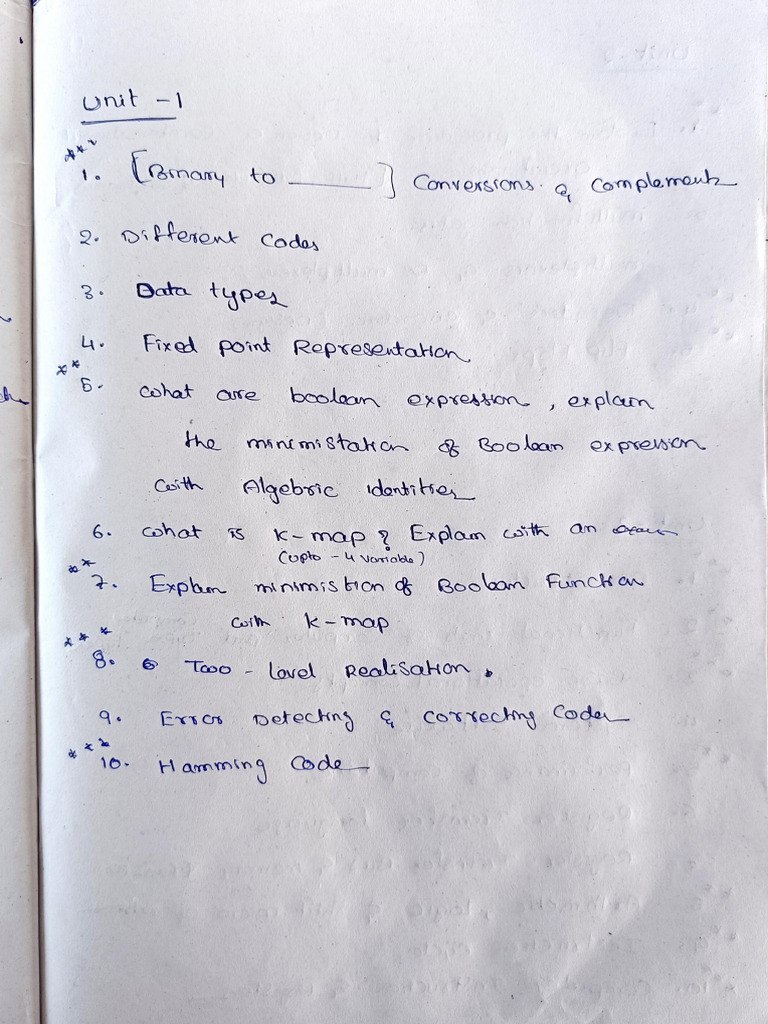 Unit - 1
***
1. [Binary to ______] Conversions & Complements
2. Different Codes
3. Data types
4. Fixed point Representation
**
5. What are boolean expression, explain
the minimistation of Boolean expression
with Algebric Identities
6. What is K-map? Explain with an
(upto - 4 variable)
**
7. Explain minimistion of Boolean Function
with K-map
***
8. Two - Level Realisation.
9. Error Detecting & Correcting Codes
***
10. Hamming Code